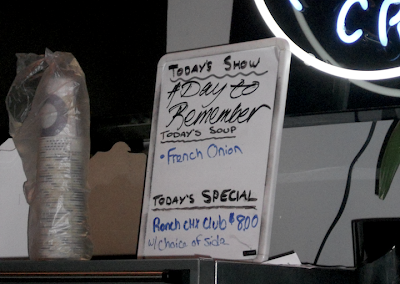 TODAY'S SHOW
A Day to
Remember
TODAY'S SOUP
• French Onion
TODAY'S SPECIAL
Ranch CHX Club $8.00
w/ choice of side